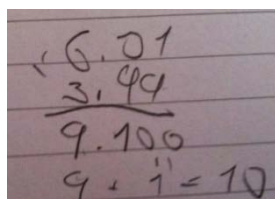 6.01
3.99
9.100
9.1 = 10